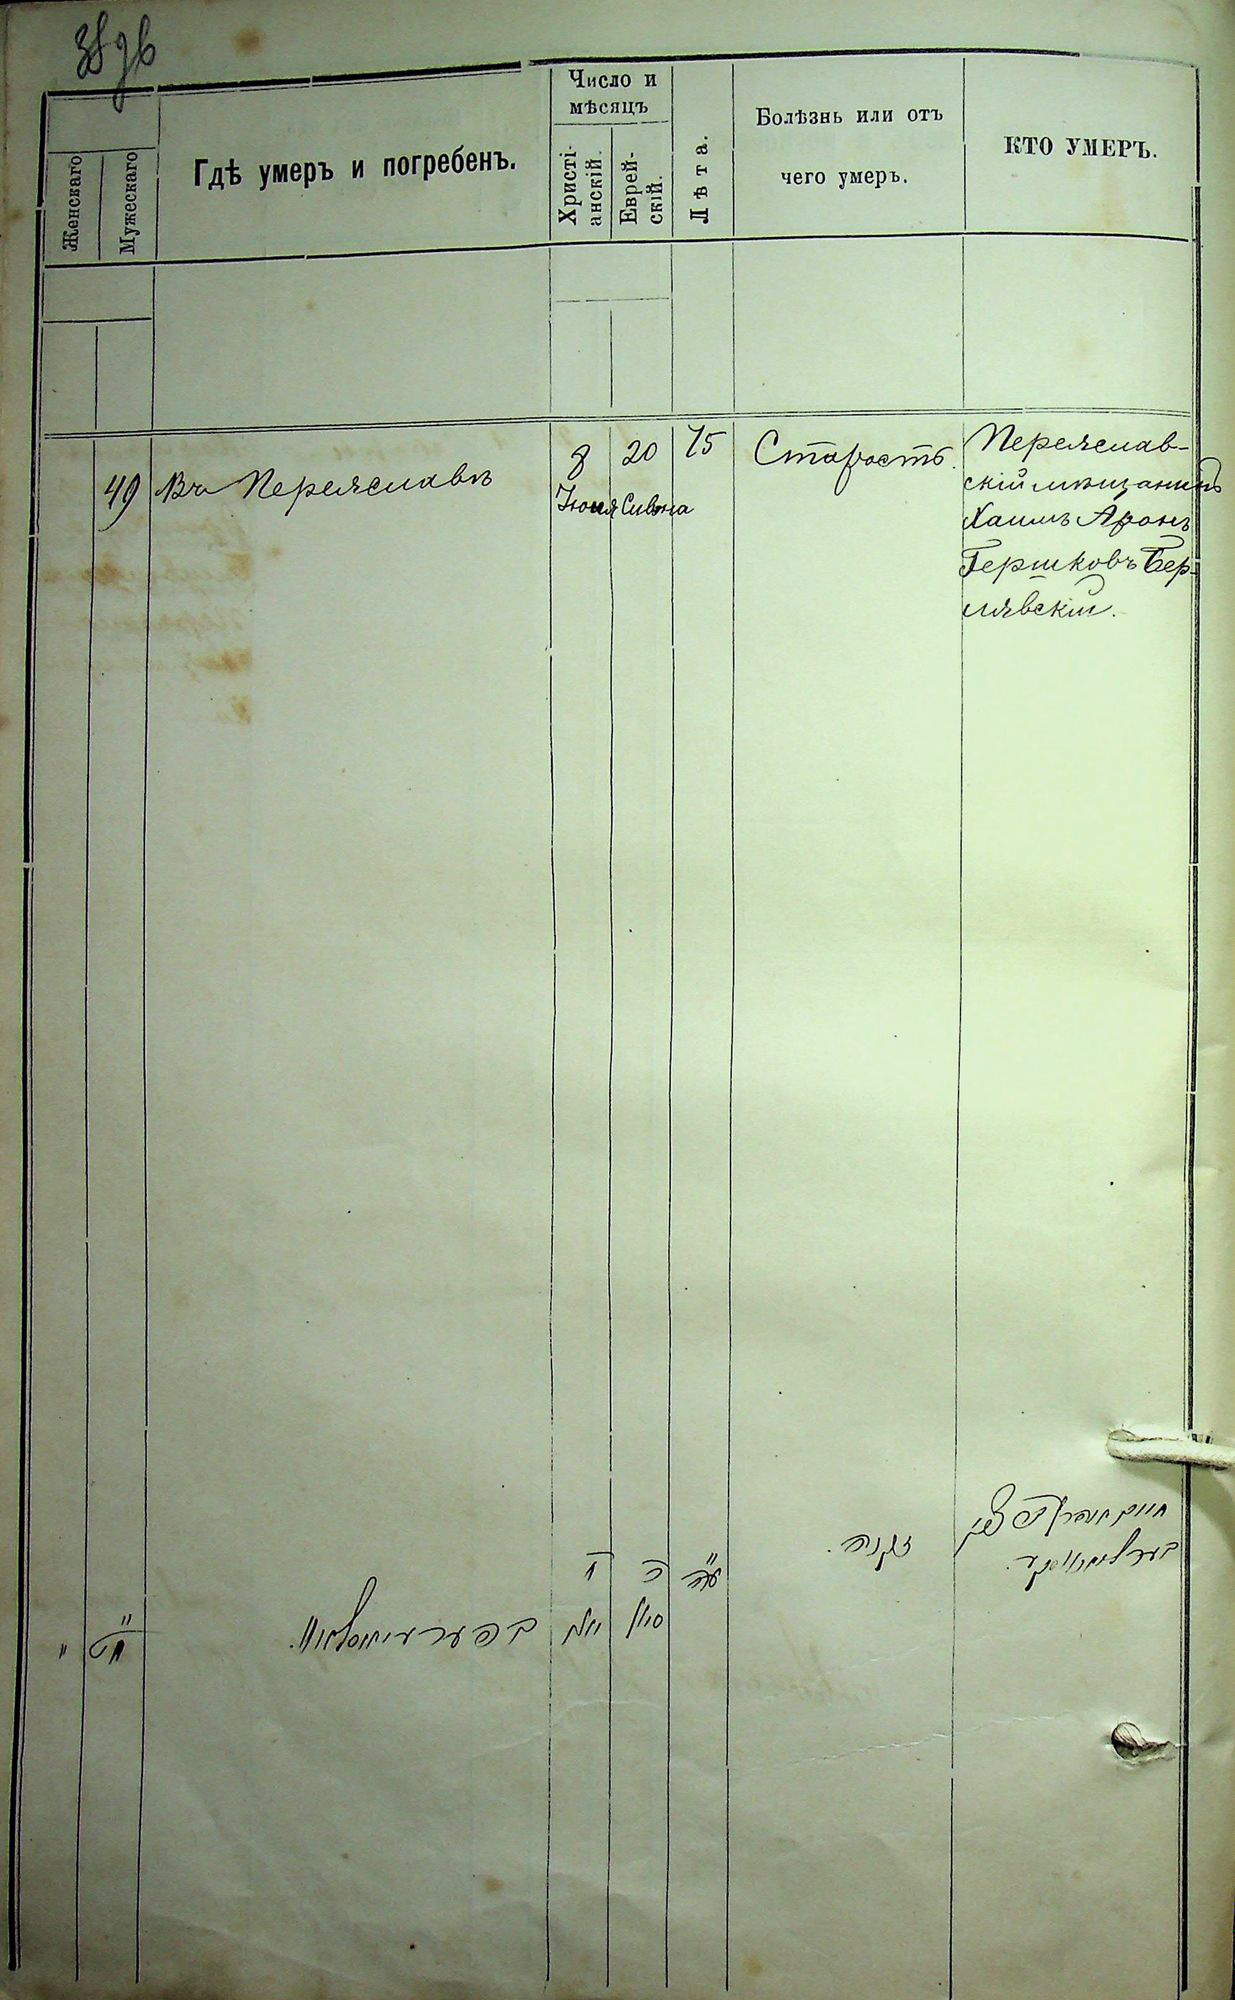 Женскаго
Мужескаго
Гдѣ умеръ и погребенъ.
Число и
мѣсяцъ
Христі-
анскій.
Еврей-
скій.
Лѣта.
Болѣзнь или отъ
чего умеръ.
КТО УМЕРЪ.
49
Въ Переяславѣ
8
Іюня
20
Сивона
75
Старость.
Переяслав-
скій мѣщанинъ
Хаимъ Аронъ
Гершковъ Бер-
лявскій.
זקנה.
ח
יוני
כ
סיון
ע״ה
מ״ט